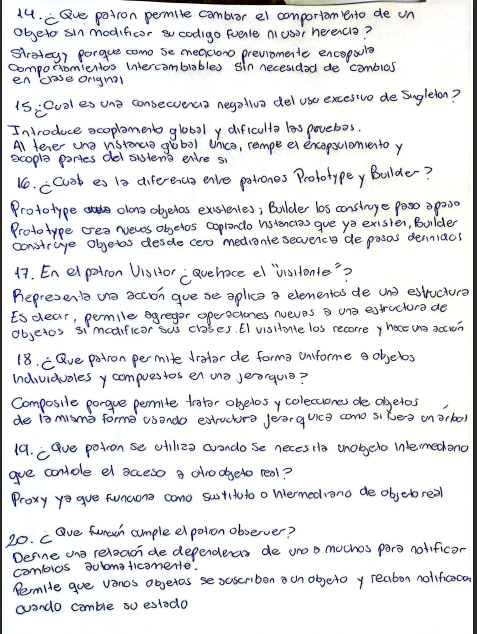 14. ¿Que patron permite cambiar el comportamiento de un
objeto sin modificar su codigo fuente ni usar herencia?
Strategy porque como se menciono previamente encapsula
comportamientos intercambiables sin necesidad de cambios
en clase original
15. ¿Cual es una consecuencia negativa del uso excesivo de Singleton?
Introduce acoplamiento global y dificulta las pruebas.
Al tener una instancia global unica, rompe el encapsulamiento y
acopla partes del sistema entre si
16. ¿Cual es la diferencia entre patrones Prototype y Builder?
Prototype clona objetos existentes; Builder los construye paso a paso
Prototype crea nuevos objetos copiando instancias que ya existen, Builder
construye objetos desde cero mediante secuencia de pasos definidos
17. En el patron Visitor ¿que hace el "visitante"?
Representa una acción que se aplica a elementos de una estructura
Es decir, permite agregar operaciones nuevas a una estructura de
objetos si modificar sus clases. El visitante los recorre y hace una acción
18. ¿Que patron permite tratar de forma uniforme a objetos
individuales y compuestos en una jerarquia?
Composite porque permite tratar objetos y colecciones de objetos
de la misma forma usando estructura jerarquica como si fuera un árbol
19. ¿Que patron se utiliza cuando se necesita un objeto intermediario
que controle el acceso a otro objeto real?
Proxy ya que funciona como sustituto o intermediario de objeto real
20. ¿Que función cumple el patron observer?
Define una relación de dependencia de uno a muchos para notificar
cambios automaticamente.
Permite que varios objetos se suscriban a un objeto y reciban notificacion
cuando cambie su estado